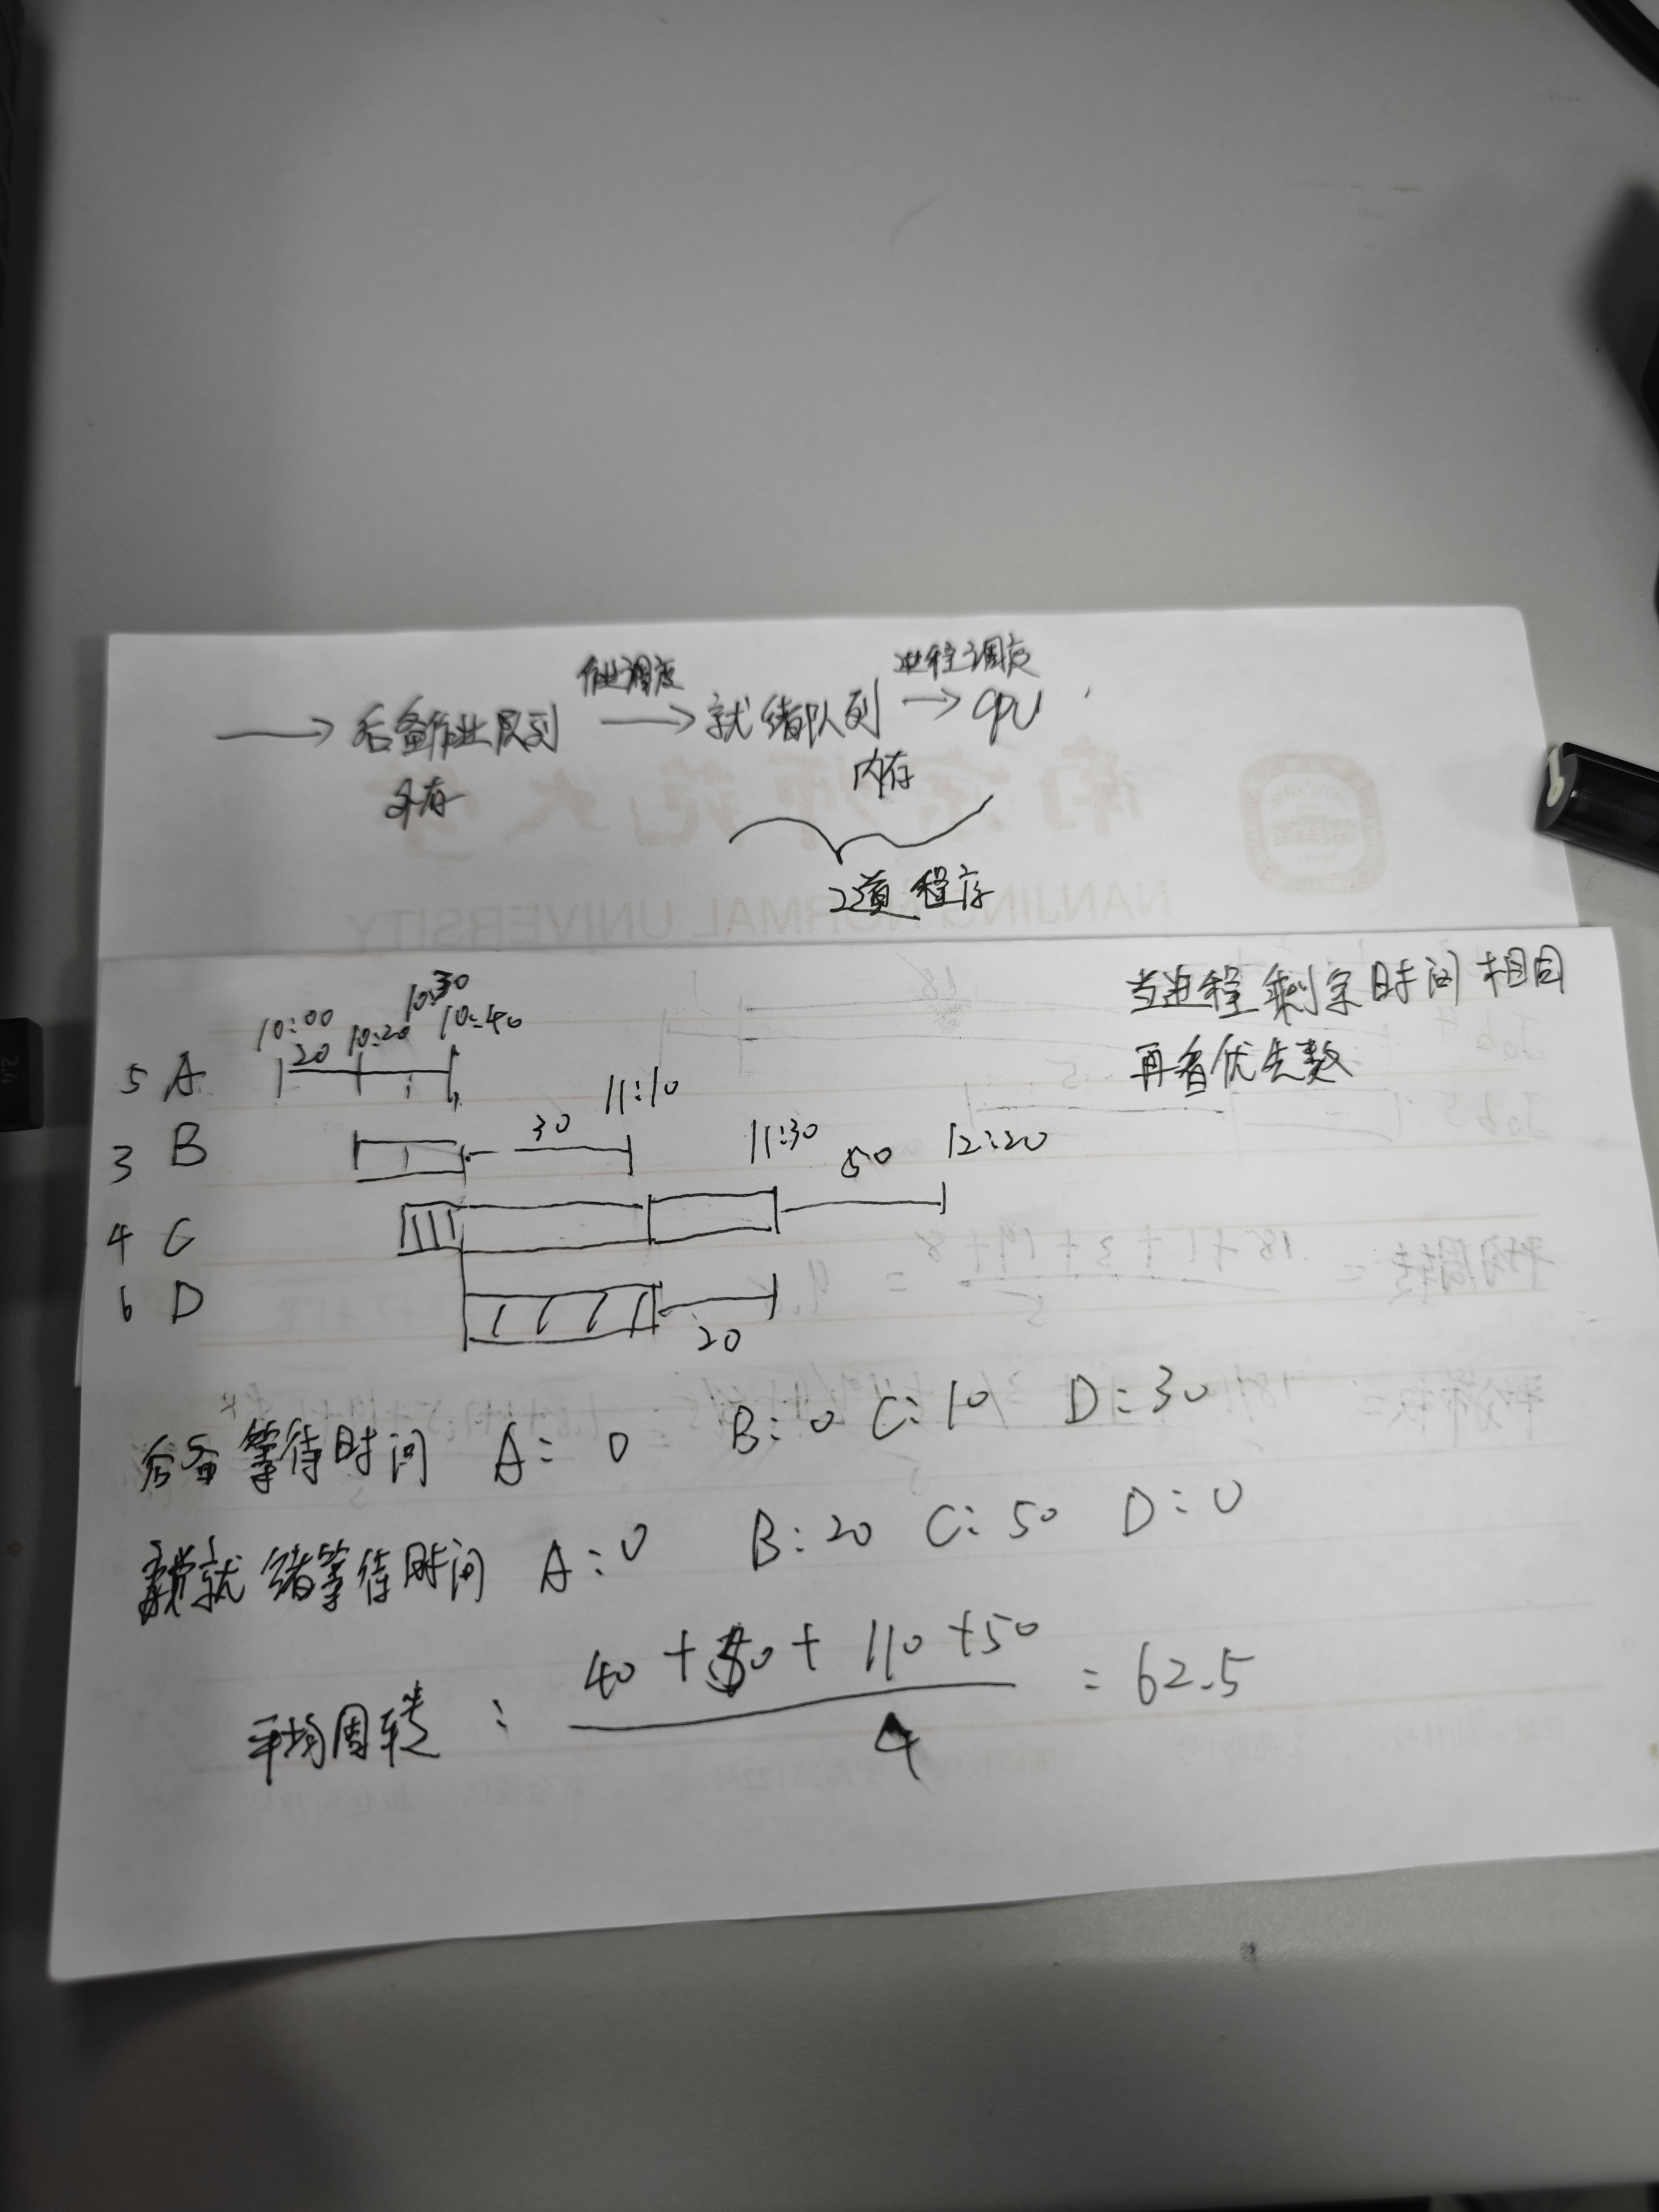 作业调度 进程调度
→ 后备作业队列 → 就绪队列 → CPU
外存 内存
2道程序
当进程剩余时间相同
再看优先数
10:00 10:20 10:30 10:40
5 A 20
3 B 30 11:10
4 C 11:30 50 12:20
6 D 20
后备等待时间 A: 0 B: 0 C: 10 D: 30
就绪等待时间 A: 0 B: 20 C: 50 D: 0
平均周转: 40 + 50 + 110 + 50 = 62.5
4